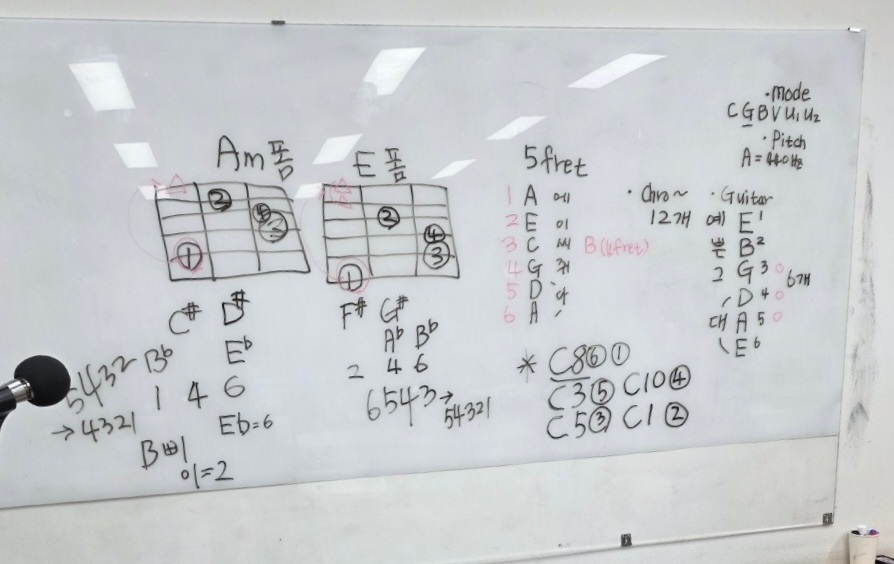 Am폼
②
④
③
①
C# D#
Eb
5432 Bb
1 4 6
→4321
Eb=6
B
=2
E폼
②
④
③
①
F# G#
Ab Bb
2 4 6
6543→
54321
5fret
1 A 에
2 E 이
3 C 씨 B(4fret)
4 G 쥐
5 D
6 A
* C8⑥①
C3⑤ C10④
C5③ C1②
· Chro~
12개
· mode
C G B V U1 U2
· Pitch
A=440Hz
· Guitar
예 E1
쁜 B2
그 G3○
D4○
대 A5○
E6
6개